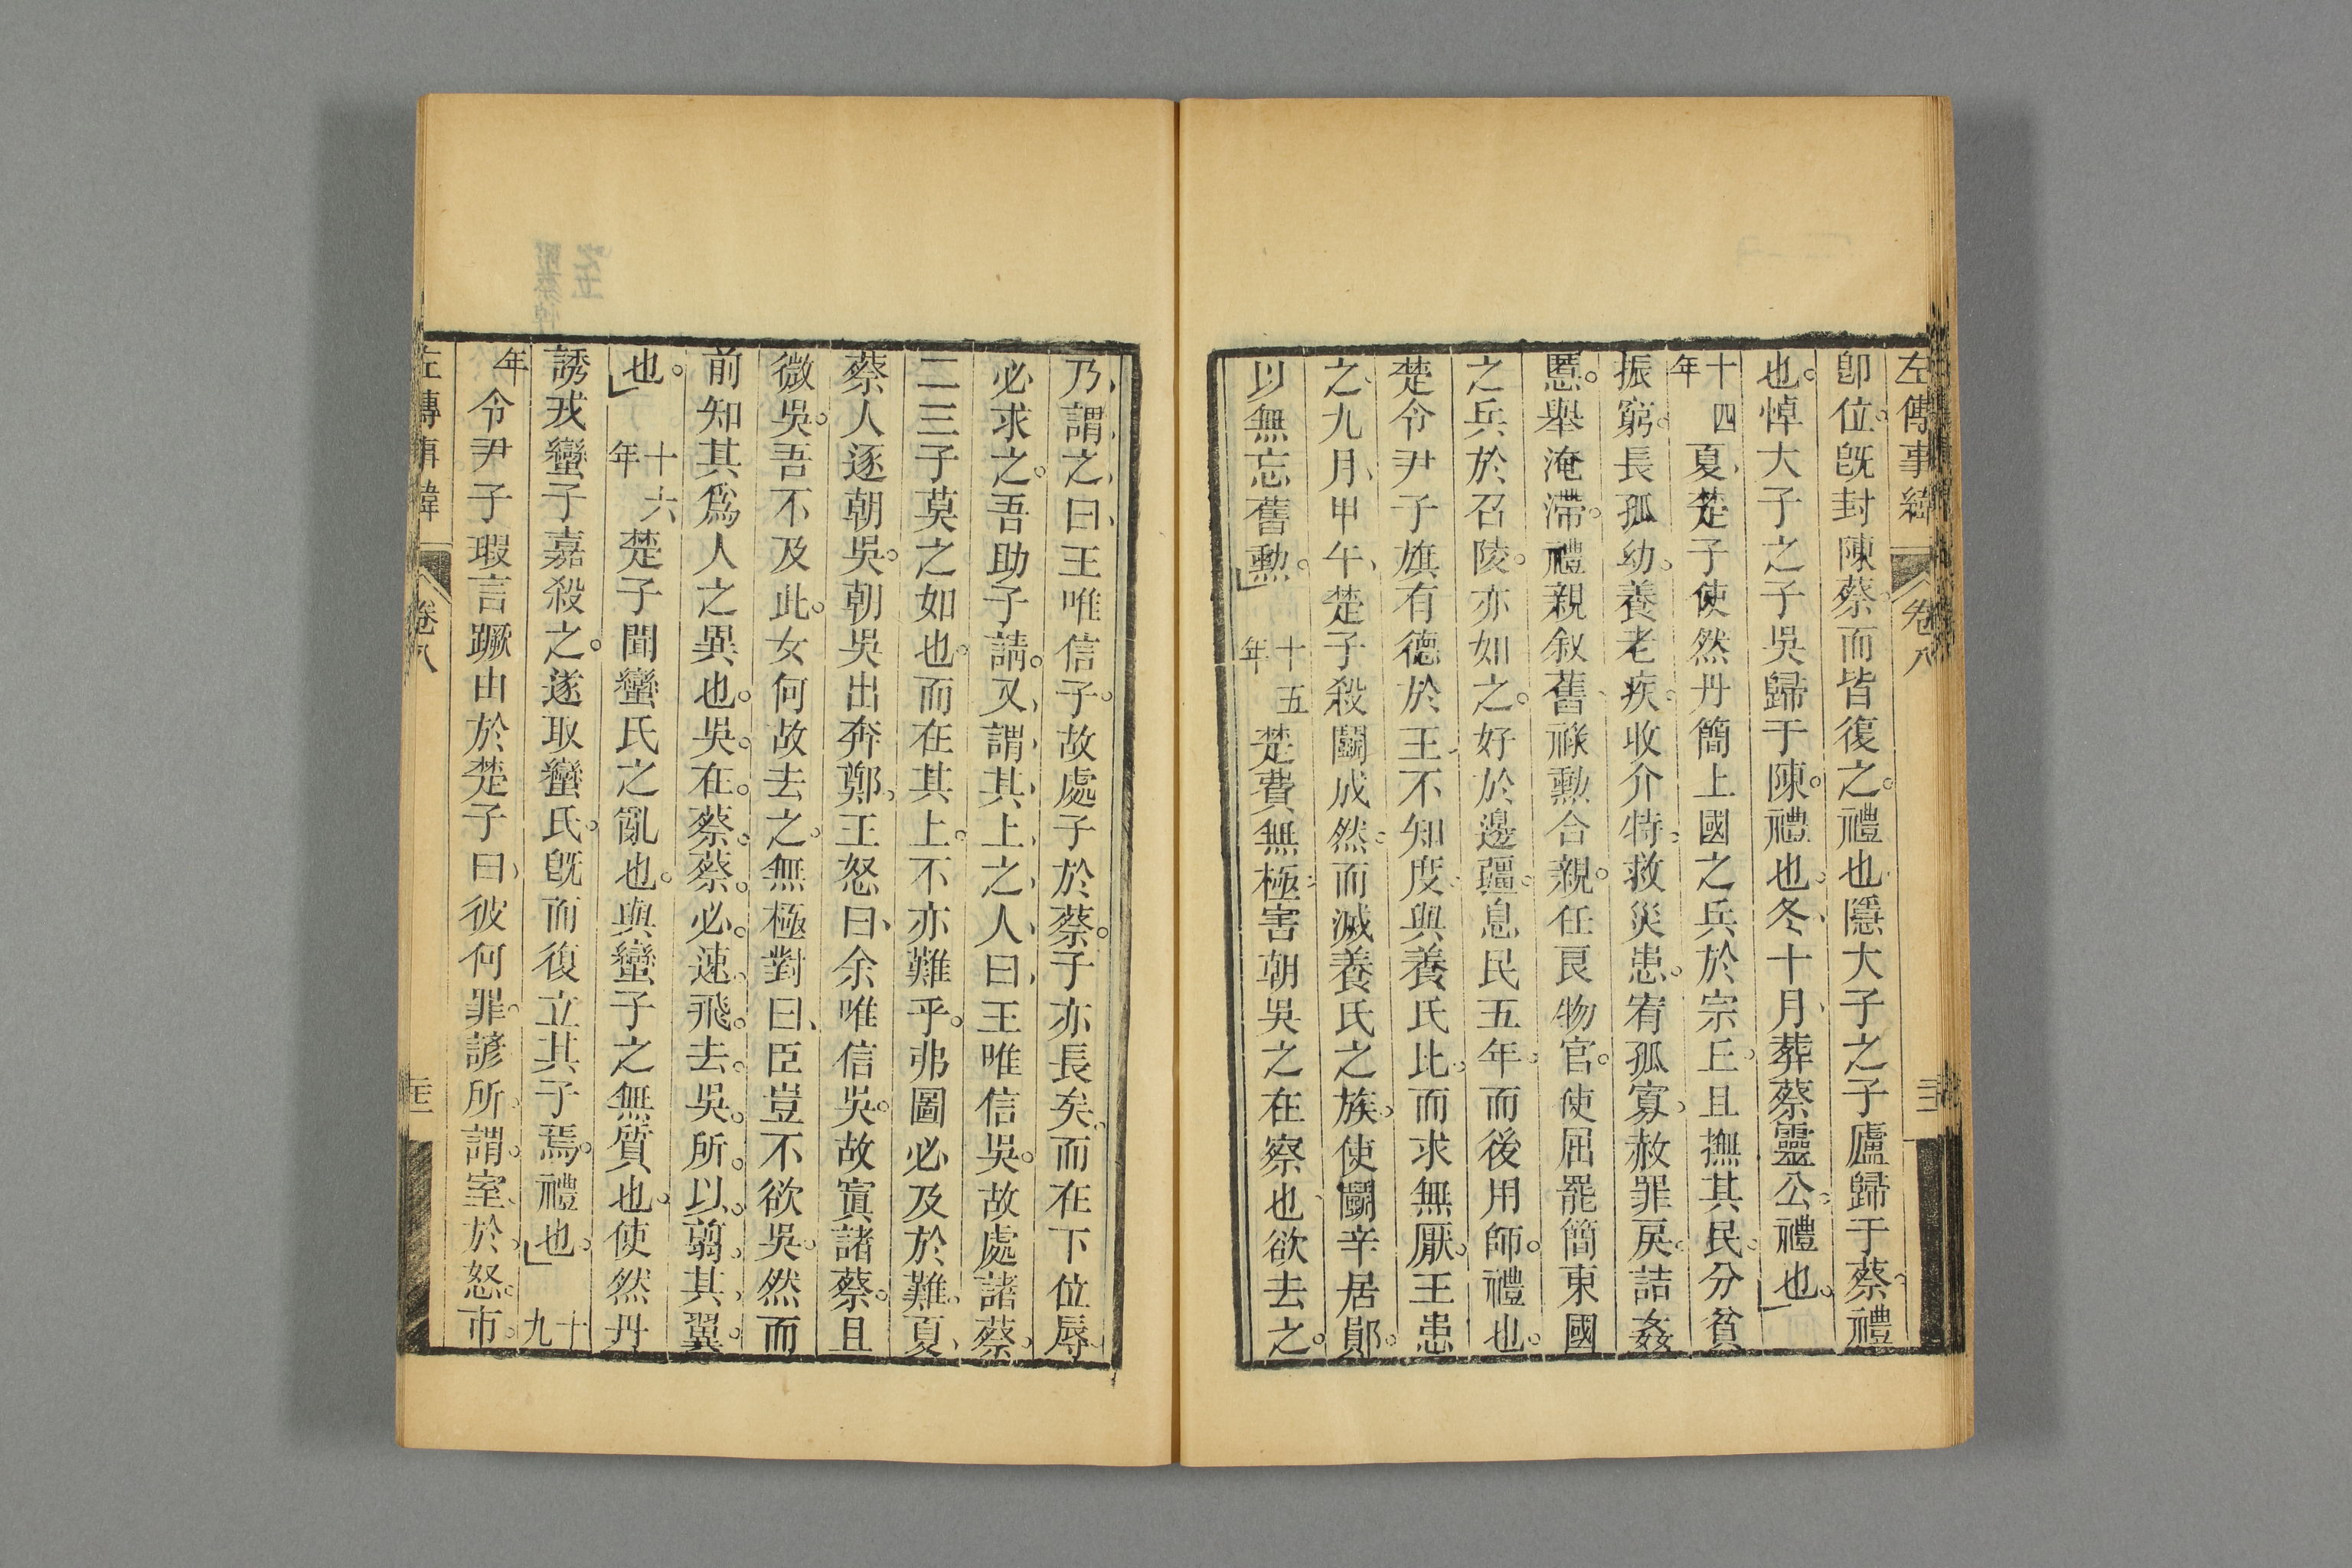 左傳事緯 卷八
卽位。旣封陳蔡。而皆復之。禮也。隱大子之子廬歸于蔡。禮
也。悼大子之子吳歸于陳。禮也。冬、十月、葬蔡靈公。禮也。
十四年夏、楚子使然丹簡上國之兵於宗丘。且撫其民。分貧
振窮。長孤幼。養老疾。收介特。救災患。宥孤寡。赦罪戾。詰姦
慝。舉淹滯。禮親叙舊。祿勲合親。任良物官。使屈罷簡東國
之兵於召陵。亦如之。好於邊疆。息民五年。而後用師。禮也。
楚令尹子旗有德於王、不知度。與養氏比。而求無厭。王患
之、九月、甲午、楚子殺鬬成然。而滅養氏之族。使鬬辛居鄖。
以無忘舊勲。十五年楚費無極害朝吳之在蔡也、欲去之。
乃、謂、之、曰、王唯信子。故處子於蔡。子亦長矣。而在下位辱。
必求之。吾助子請。又、謂、其、上、之、人、曰、王唯信吳。故處諸蔡。
二三子莫之如也。而在其上。不亦難乎。弗圖必及於難。夏、
蔡人逐朝吳。朝吳出奔鄭、王怒曰、余唯信吳。故寘諸蔡。且
微吳。吾不及此。女何故去之。無極對曰、臣豈不欲吳。然而
前知其爲人之異也。吳。在。蔡。蔡。必。速。飛。去。吳。所。以。翦。其。翼。
也。十六年楚子聞蠻氏之亂也。與蠻子之無質也。使然丹
誘戎蠻子嘉殺之。遂取蠻氏。旣而復立其子焉。禮也。十九
年令尹子瑕言蹶由於楚子曰、彼何罪。諺所。謂。室。於。怒。市。
左傳事緯 卷八